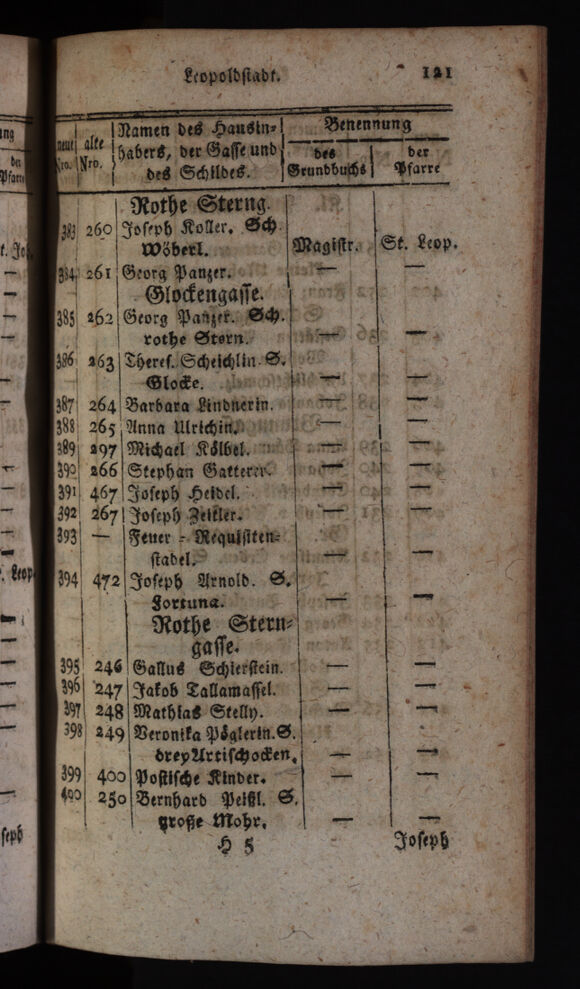 Leopoldstadt. 121
neue Nro. alte Nro. Namen des Hausin- Benennung
habers, der Gasse und des der
des Schildes. Grundbuchs Pfarre
Rothe Sterng.
383 260 Joseph Koller. Sch.
Wöberl. Magistr. St. Leop.
384 261 Georg Panzer. — —
Glockengasse.
385 262 Georg Panzer. Sch.
rothe Stern. — —
386 263 Theres. Scheichlin. S.
Glocke. — —
387 264 Barbara Lindnerin. — —
388 265 Anna Ulrichin. — —
389 297 Michael Kölbel. — —
390 266 Stephan Gatterer. — —
391 467 Joseph Heidel. — —
392 267 Joseph Zeitler. — —
393 — Feuer-Requisiten-
stadel. — —
394 472 Joseph Arnold. S.
Fortuna. — —
Rothe Stern-
gasse.
395 246 Gallus Schierstein. — —
396 247 Jakob Tallamassel. — —
397 248 Mathias Stelly. — —
398 249 Veronika Pöglerin. S.
drey Artischocken. — —
399 400 Postische Kinder. — —
400 250 Bernhard Peißl. S.
große Mohr. — —
H 5 Joseph